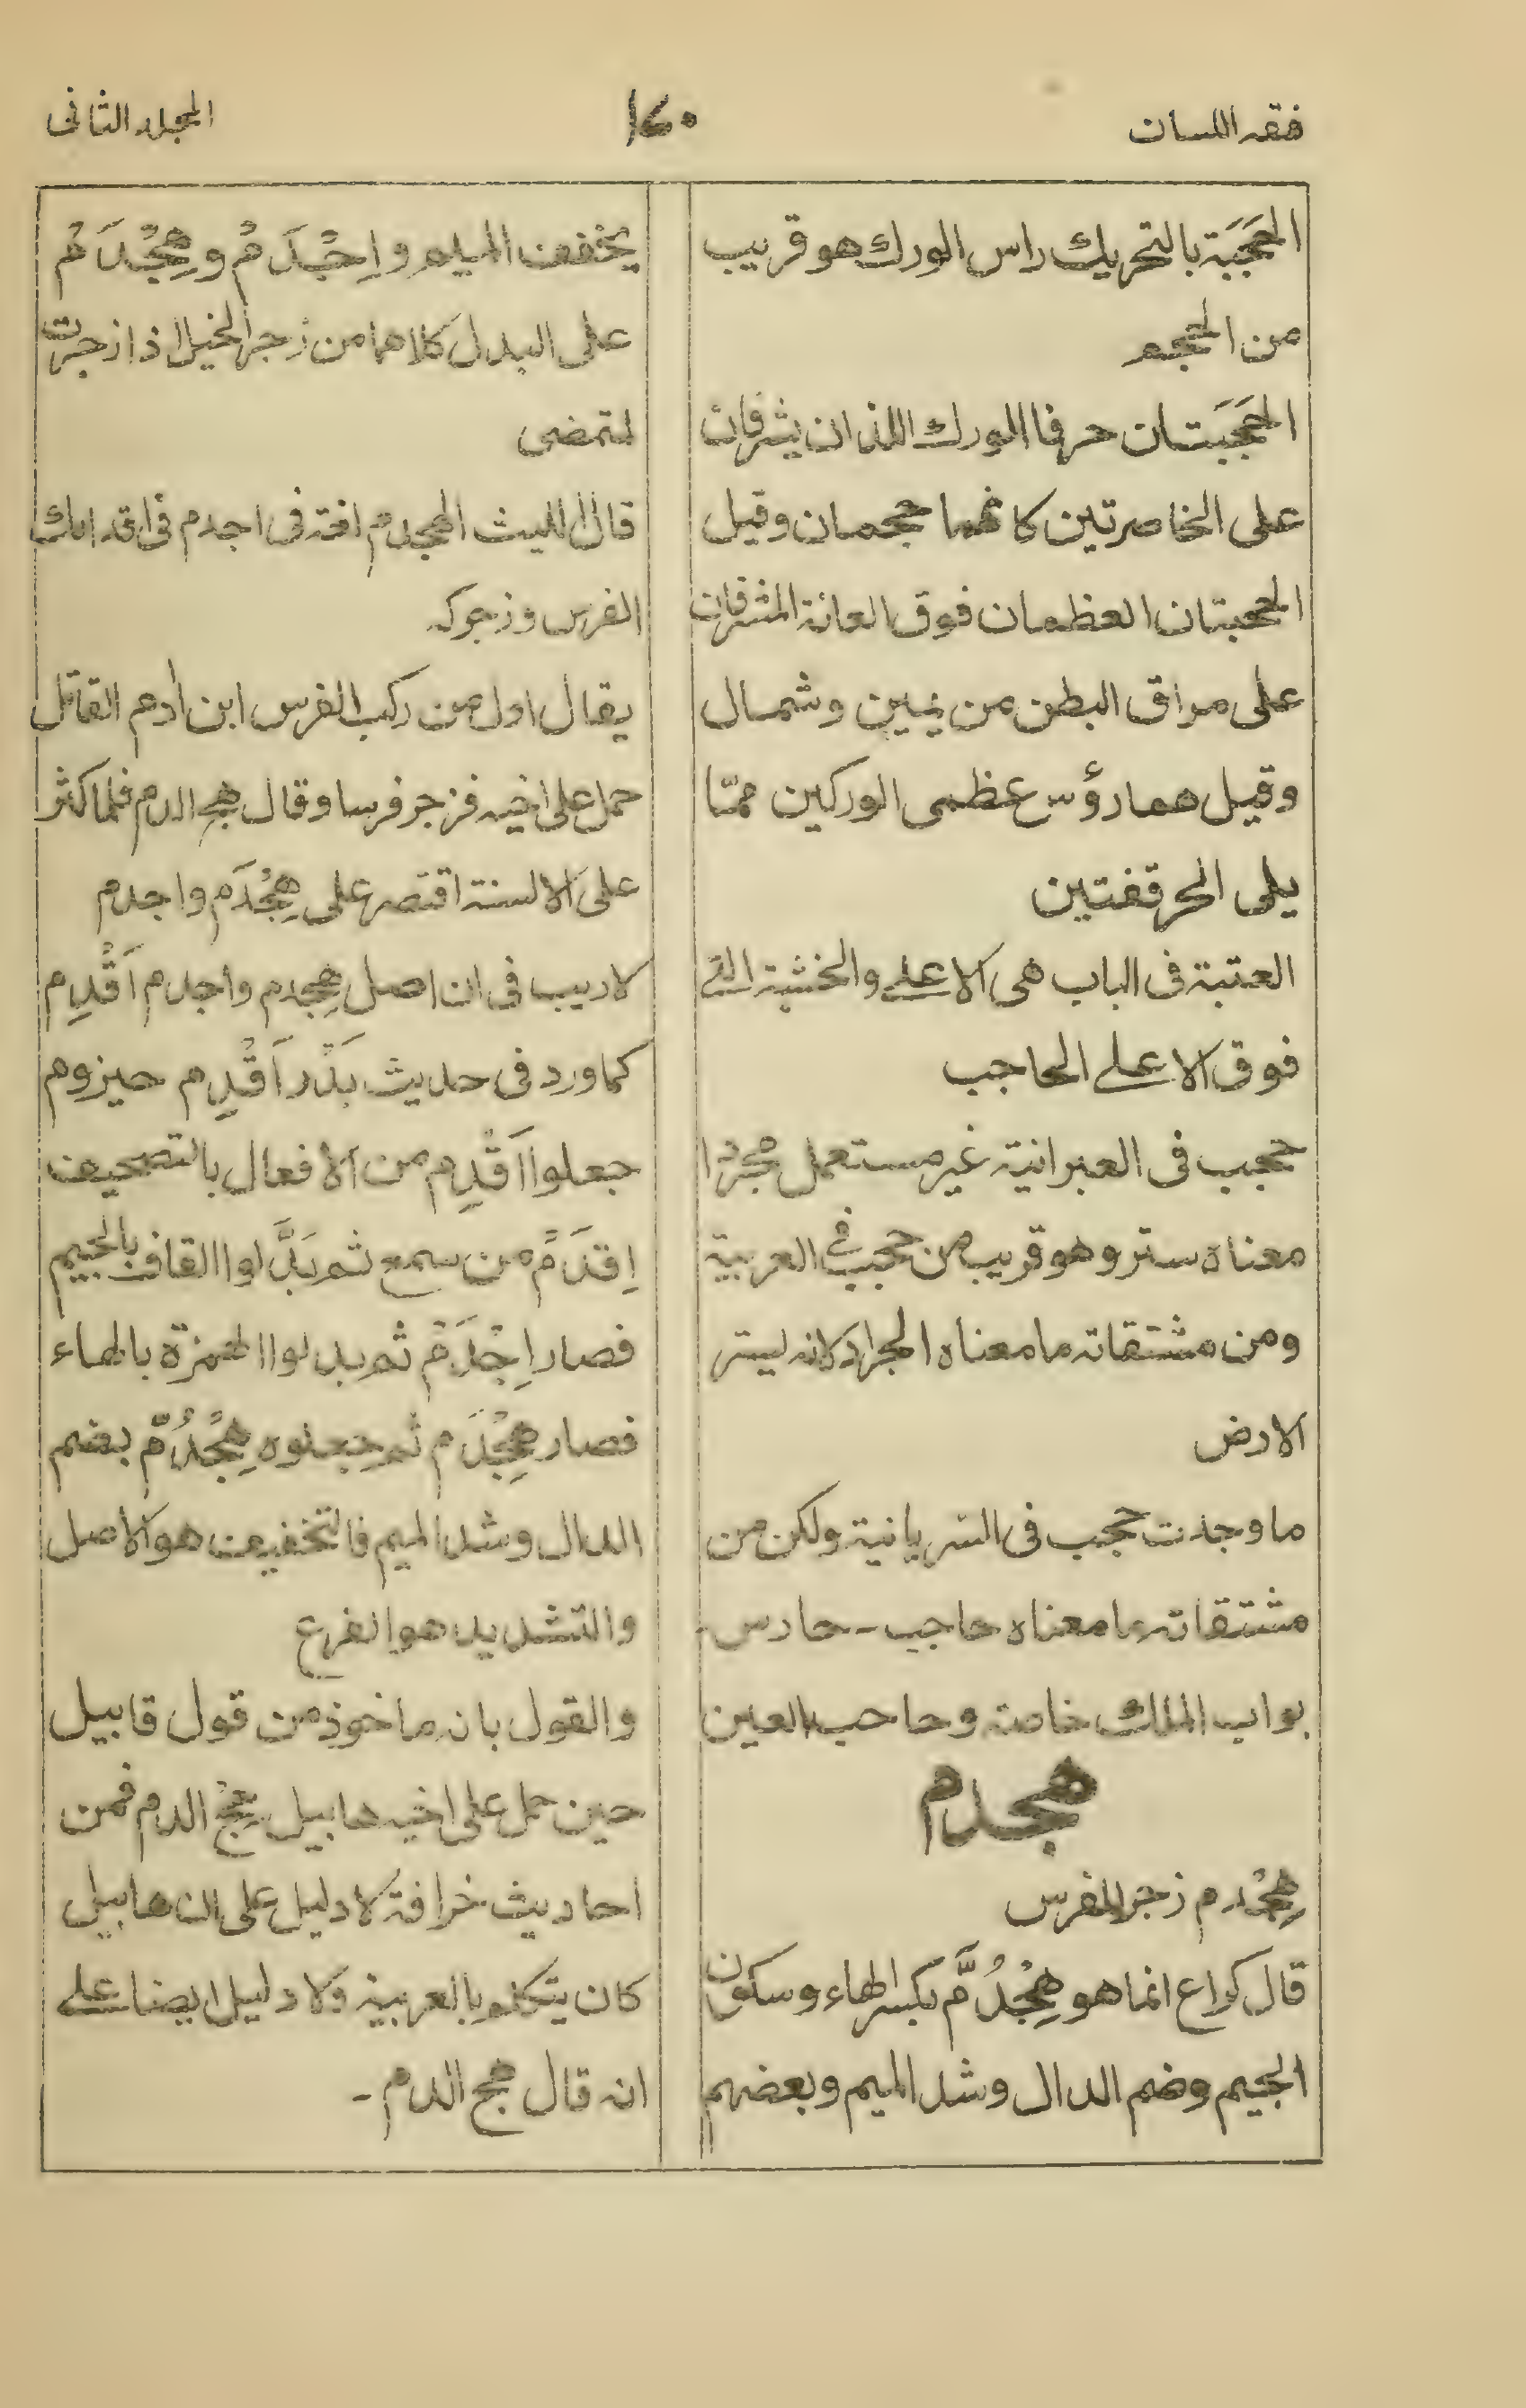 فقه اللسان
١٤٠
المجلد الثانى
الحَجَبَة بالتحريك راس الورك هو قريب
من الحجم
الحَجَبَتان حرفا الورك اللذان يشرفان
على الخاصرتين كانهما حجمان وقيل
الحجبتان العظمان فوق العانة المشرفان
على مراق البطن من يمين وشمال
وقيل هما رؤس عظمى الوركين ممّا
يلى الحرقفتين
العتبة فى الباب هى الاعلے والخشبة التے
فوق الاعلے الحاجب
حجب فى العبرانية غير مستعمل مجردا
معناه ستر وهو قريب من حجب فى العربية
ومن مشتقاته ما معناه الجراد لانه ليستر
الارض
ما وجدت حجب فى السريانية ولكن من
مشتقاته ما معناه حاجب - حارس -
بواب الملك خاصة وحاجب العين
هجدم
هِجْدم زجر للفرس
قال كراع انما هو هِجْدُمّ بكسر الهاء وسكون
الجيم وضم الدال وشد الميم وبعضهم
يخفف الميم واِجْدَمْ وهِجْدَمْ
على البدل كلاهما من زجر الخيل اذا زجرت
لتمضى
قال الليث الهجدم لغة فى اجدم فى اقدامك
الفرس وزجركه
يقال اول من ركب الفرس ابن اٰدم القاتل
حمل على اخيه فزجر فرسا وقال هِج الدم فلما كثر
على الالسنة اقتصر على هِجْدَم واجدم
لاريب فى ان اصل هِجدم واجدم اَقْدِم
كما ورد فى حديث بَدْر اَقْدِم حيزوم
جعلوا اَقْدِم من الافعال بالتصحيف
اِقدَمْ من سمع ثم بَدَّلوا القاف بالجيم
فصار اِجْدَمْ ثم بدلوا الهمزة بالهاء
فصار هِجْدَم ثم جعلوه هِجْدُمّ بضم
الدال وشد الميم فالتخفيف هو الاصل
والتشديد هو الفرع
والقول بانه ماخوذ من قول قابيل
حين حمل على اخيه هابيل هِجْ الدم فمن
احاديث خرافة لا دليل على ان هابيل
كان يتكلم بالعربية ولا دليل ايضا علے
انه قال هج الدم -